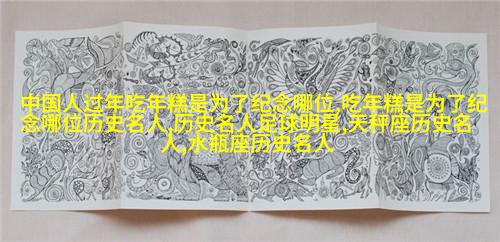 中国人过年吃年糕是为了纪念哪位,吃年糕是为了纪
念哪位历史名人,历史名人足球明星,天秤座历史名
人,水瓶座历史名人